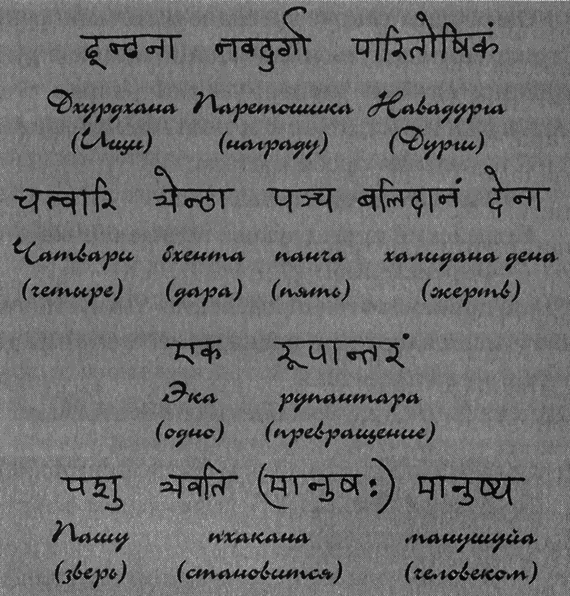 ढून्ढना नवदुर्गा पारितोषिक
Дхурдхана Паретошика Навадурга
(Ищи) (награду) (Дурги)
चत्वारि भेन्ठा पञ्च बलिदानं देना
Чатвари бхента панча халидана дена
(четыре) (дара) (пять) (жертв)
एक रूपान्तरं
Эка рупантара
(одно) (превращение)
पशु भवति (मानुषः) मानुष्य
Пашу пхакана манушуйа
(зверь) (становится) (человеком)